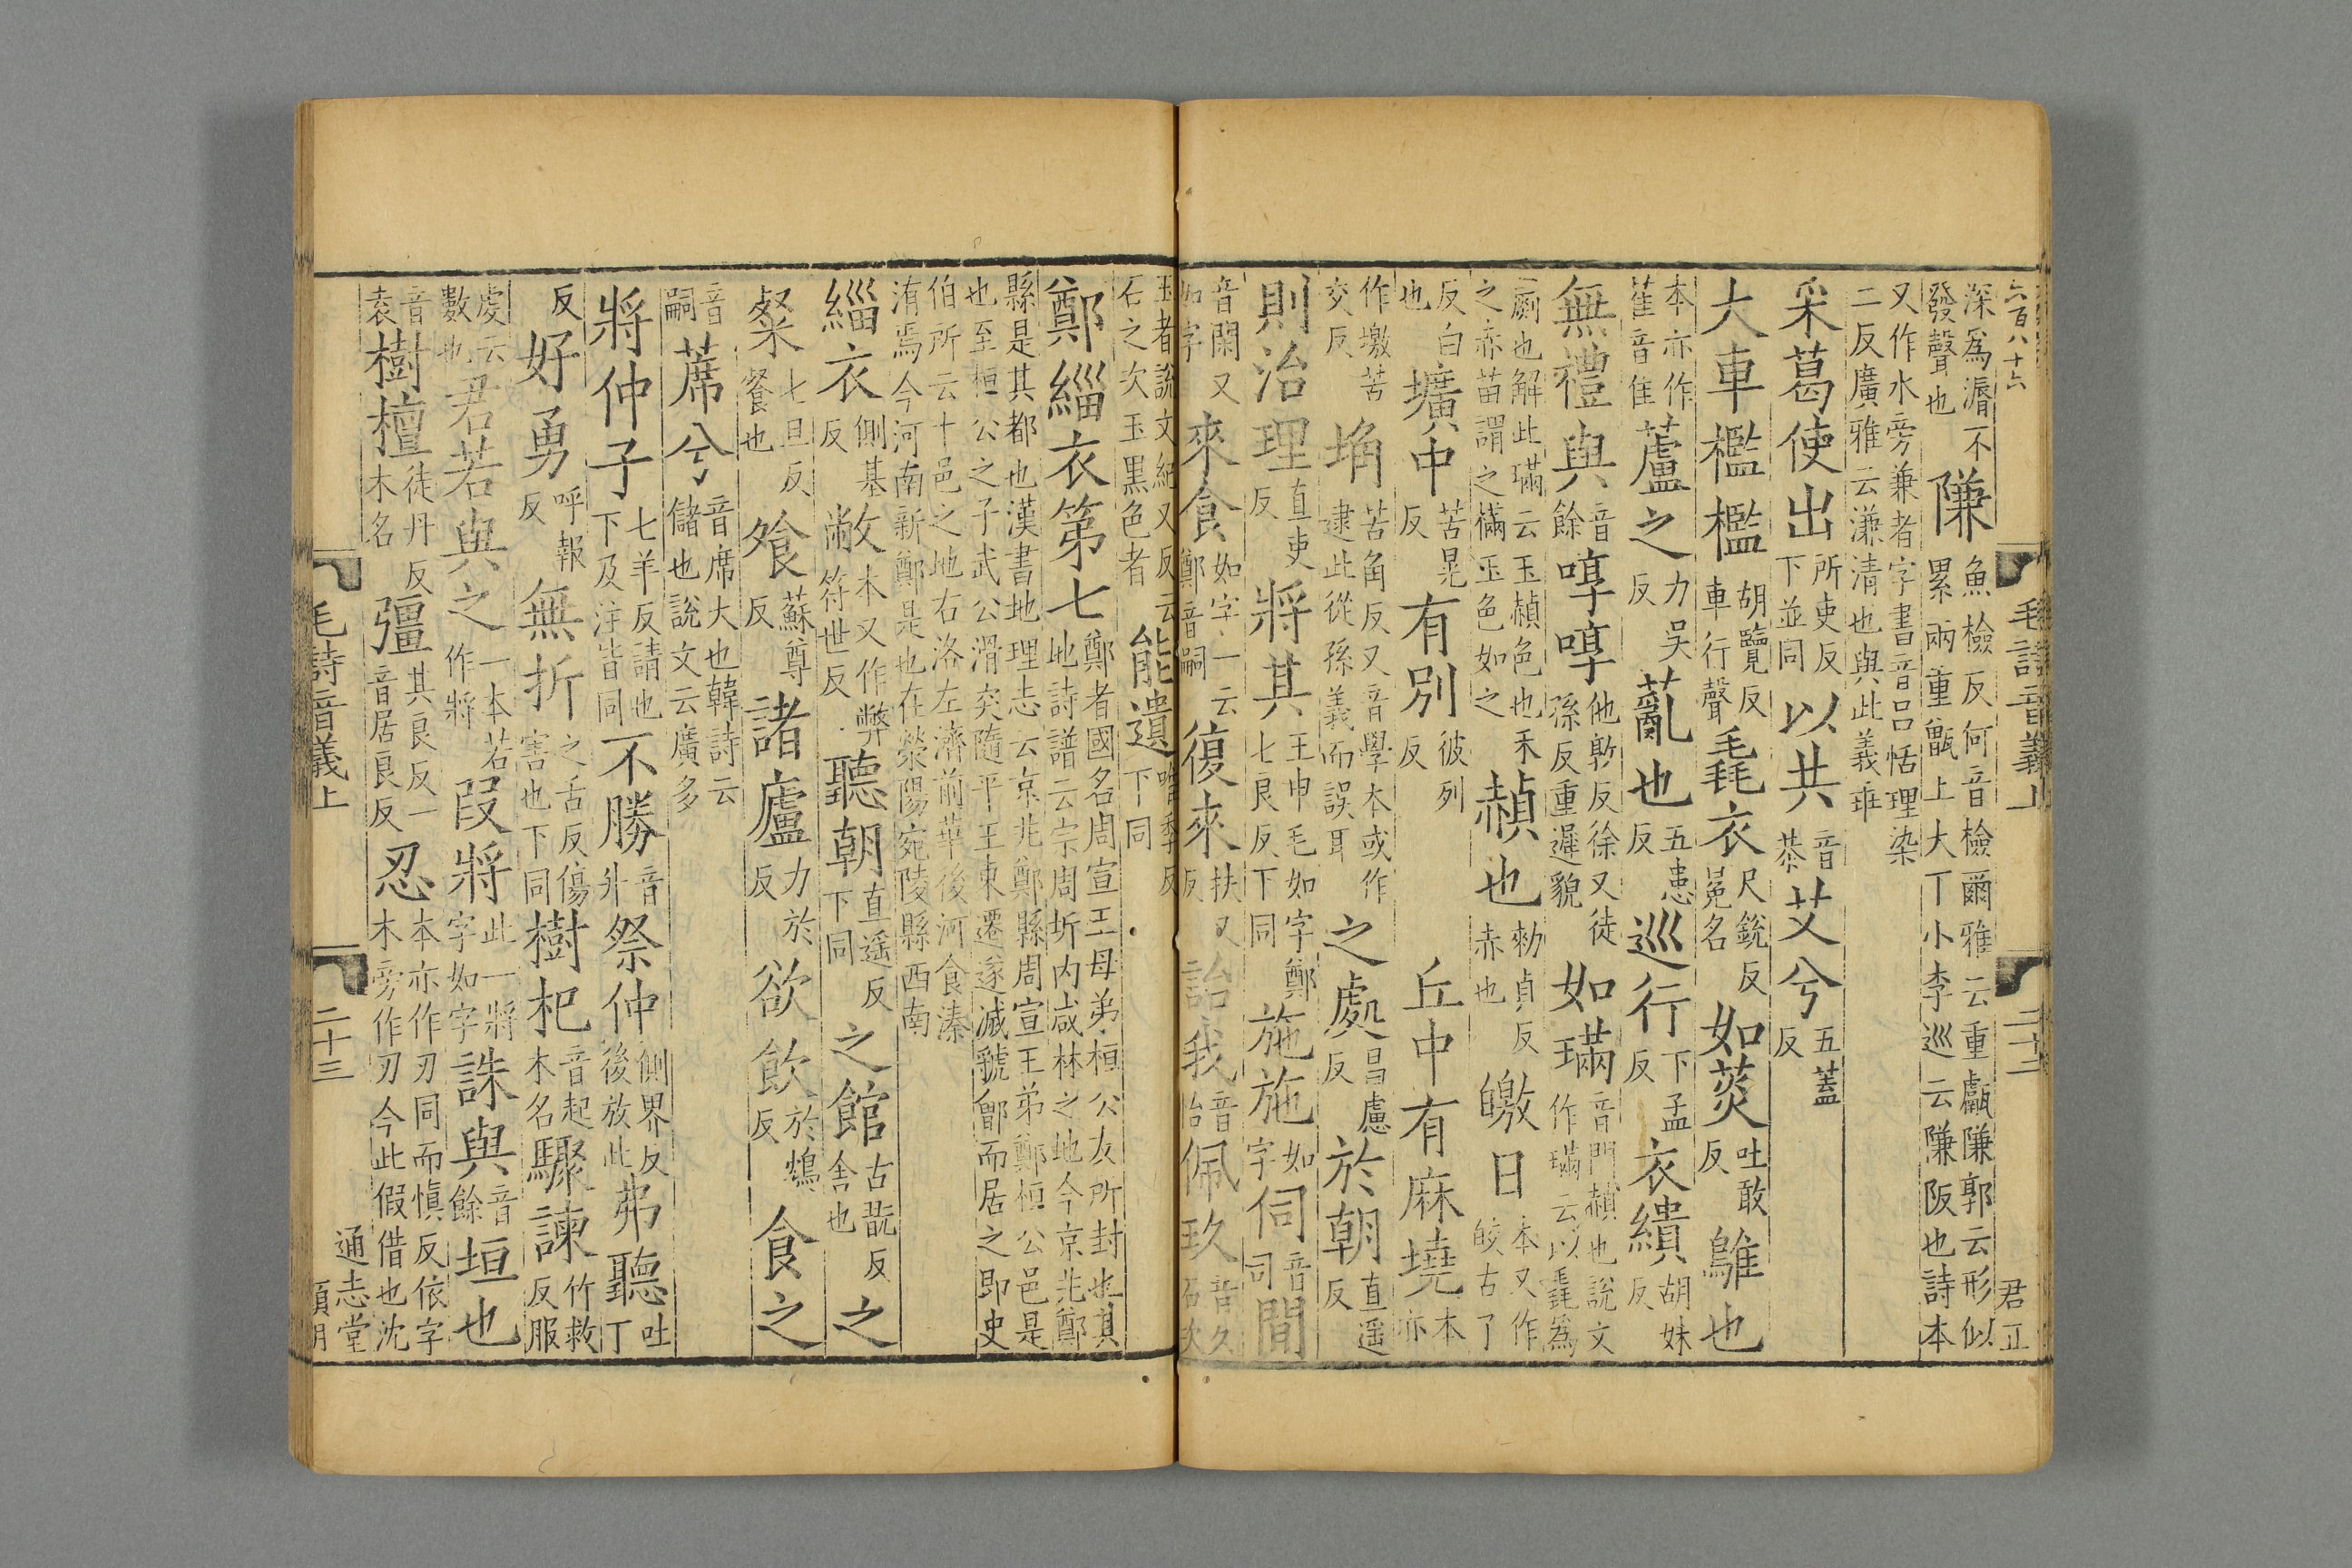 六百八十六 毛詩音義上 君正
深爲漘不發聲也隒魚檢反何音檢爾雅云重甗隒郭云形似累兩重甑上大丅小李巡云隒阪也詩本
又作水旁兼者字書音呂恬理染二反廣雅云溓清也與此義乖
采葛使出所吏反下並同以共音恭艾兮五蓋反
大車檻檻胡覽反車行聲毳衣尺銳反冕名如菼吐敢反鵻也
本亦作萑音隹蘆之力吴反薍也五患反巡行下孟反衣繢胡妹反
無禮與音餘啍啍他敦反徐又徒孫反重遲貌如璊音門赬也說文作璊云以毳爲
𦇧也解此璊云玉赬色也禾之赤苗謂之樠玉色如之赬也勑貞反赤也皦日本又作皎古了
反白也壙中苦晃反有別彼列反丘中有麻墝本亦
作墽苦交反埆苦角反又音學本或作逮此從孫義而誤耳之處昌慮反於朝直遥反
則治理直吏反將其王申毛如字鄭七良反下同施施如字伺音司閒
音閑又如字來食如字一云鄭音嗣復來扶又反詒我音怡佩玖音久石次
玉者說文紀又反云石之次玉黑色者能遺唯季反下同
鄭緇衣第七鄭者國名周宣王母弟桓公友所封也其地詩譜云宗周圻内咸林之地今京兆鄭
縣是其都也漢書地理志云京兆鄭縣周宣王弟鄭桓公邑是也至桓公之子武公滑突隨平王東遷遂滅虢鄶而居之即史
伯所云十邑之地右洛左濟前華後河食溱洧焉今河南新鄭是也在滎陽宛陵縣西南
緇衣側基反敝本又作弊符世反聽朝直遥反下同之館古翫反舍也之
粲七旦反餐也飧蘇尊反諸廬力於反欲飲於鴆反食之
音嗣蓆兮音席大也韓詩云儲也說文云廣多
將仲子七羊反請也下及注皆同不勝音升祭仲側界反後放此弗聽吐丁
反好勇呼報反無折之舌反傷害也下同樹杞音起木名驟諫竹救反服
虔云數也君若與之一本若作將叚將此一將字如字誅與音餘垣也
音袁樹檀徒丹反木名彊其良反一音居良反忍本亦作刃同而愼反依字木旁作刃今此假借也沈
毛詩音義上 二十三 通志堂